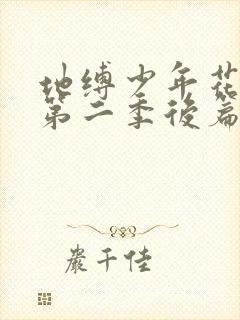 地缚少年花
第二季後篇
嚴千佳